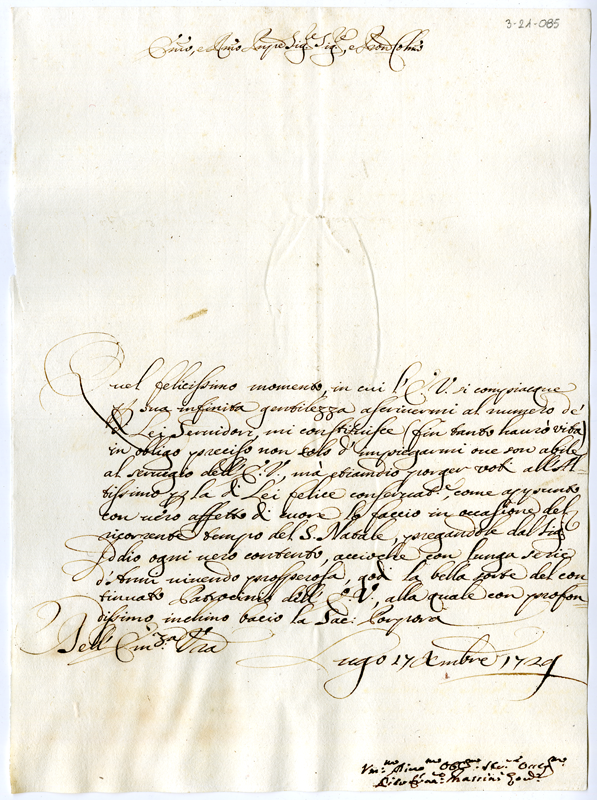 3-21-085
Em̃o, e Rmo Prnpe Sig.re Sig.re, e Pron Colmo
Quel felicissimo momento, in cui l'E.V. si compiacque
p sua infinita gentilezza ascrivermi al numero de'
di Lei Servidori, mi constituisce (fin tanto havrò vita)
in obligo preciso non solo d'impiegarmi ove son abile
al servigio dell'E.V., mà etiandio porger voti all'Al-
tissimo p la di Lei felice conservat.e, come appunto
con vero affetto di cuore lo faccio in occasione del
ricorrente tempo del S. Natale, pregandole dal Sig.
Iddio ogni vero contento, accioche con lunga serie
d'Anni vivendo prosperosa, goda la bella sorte del con
tinuato Patrocinio dell'E.V., alla quale con profon-
dissimo inchino bacio la Sac: Porpora
Dell' Em.za V.ra
Lugo 17 Xmbre 1729
Um.mo Divmo Obb.mo Ser.re
Massini